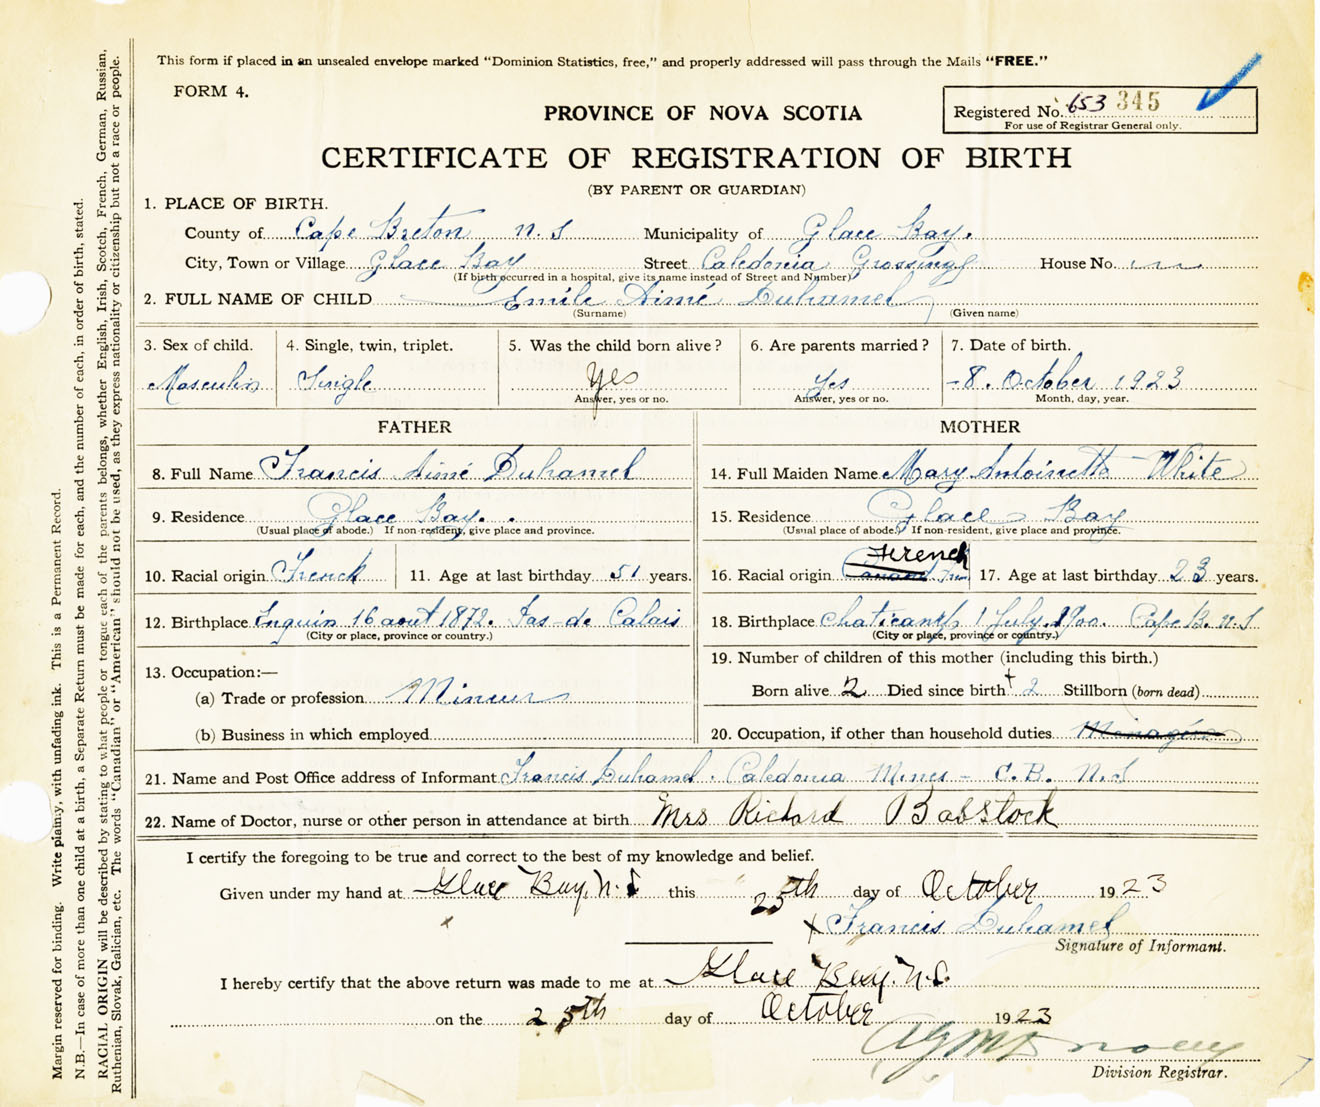 This form if placed in an unsealed envelope marked "Dominion Statistics, free," and properly addressed will pass through the Mails "FREE."
FORM 4.
PROVINCE OF NOVA SCOTIA
Registered No. 653 345
For use of Registrar General only.
CERTIFICATE OF REGISTRATION OF BIRTH
(BY PARENT OR GUARDIAN)
1. PLACE OF BIRTH.
County of Cape Breton N.S Municipality of Glace Bay.
City, Town or Village Glace Bay Street Caledonia Grossing House No.
(If birth occurred in a hospital, give its name instead of Street and Number)
2. FULL NAME OF CHILD Emile Aimé Duhamel
(Surname) (Given name)
3. Sex of child. 4. Single, twin, triplet. 5. Was the child born alive? 6. Are parents married? 7. Date of birth.
Masculin Single Yes Yes -8. October 1923
Answer, yes or no. Answer, yes or no. Month, day, year.
FATHER MOTHER
8. Full Name Francis Aimé Duhamel 14. Full Maiden Name Mary Antoinette White
9. Residence Glace Bay. 15. Residence Glace Bay
(Usual place of abode.) If non-resident, give place and province. (Usual place of abode.) If non-resident, give place and province.
French
10. Racial origin French 11. Age at last birthday 51 years. 16. Racial origin 17. Age at last birthday 23 years.
12. Birthplace Enquin 16 aout 1872. Pas-de Calais 18. Birthplace 1 July 1900. Cape B. N.S
(City or place, province or country.) (City or place, province or country.)
19. Number of children of this mother (including this birth.)
13. Occupation:—
(a) Trade or profession Mineur Born alive 2 Died since birth 2 Stillborn (born dead)
(b) Business in which employed 20. Occupation, if other than household duties
21. Name and Post Office address of Informant Francis Duhamel. Caledonia Mines - C.B. N.S
22. Name of Doctor, nurse or other person in attendance at birth Mrs Richard Babstock
I certify the foregoing to be true and correct to the best of my knowledge and belief.
Given under my hand at Glace Bay, N.S this 25th day of October 1923
x Francis Duhamel
Signature of Informant.
I hereby certify that the above return was made to me at Glace Bay. N.S.
on the 25th day of October 1923
Division Registrar.
Margin reserved for binding. Write plainly, with unfading ink. This is a Permanent Record.
N.B.—In case of more than one child at a birth, a Separate Return must be made for each, and the number of each, in order of birth, stated.
RACIAL ORIGIN will be described by stating to what people or tongue each of the parents belongs, whether English, Irish, Scotch, French, German, Russian,
Ruthenian, Slovak, Galician, etc. The words "Canadian" or "American" should not be used, as they express nationality or citizenship but not a race or people.